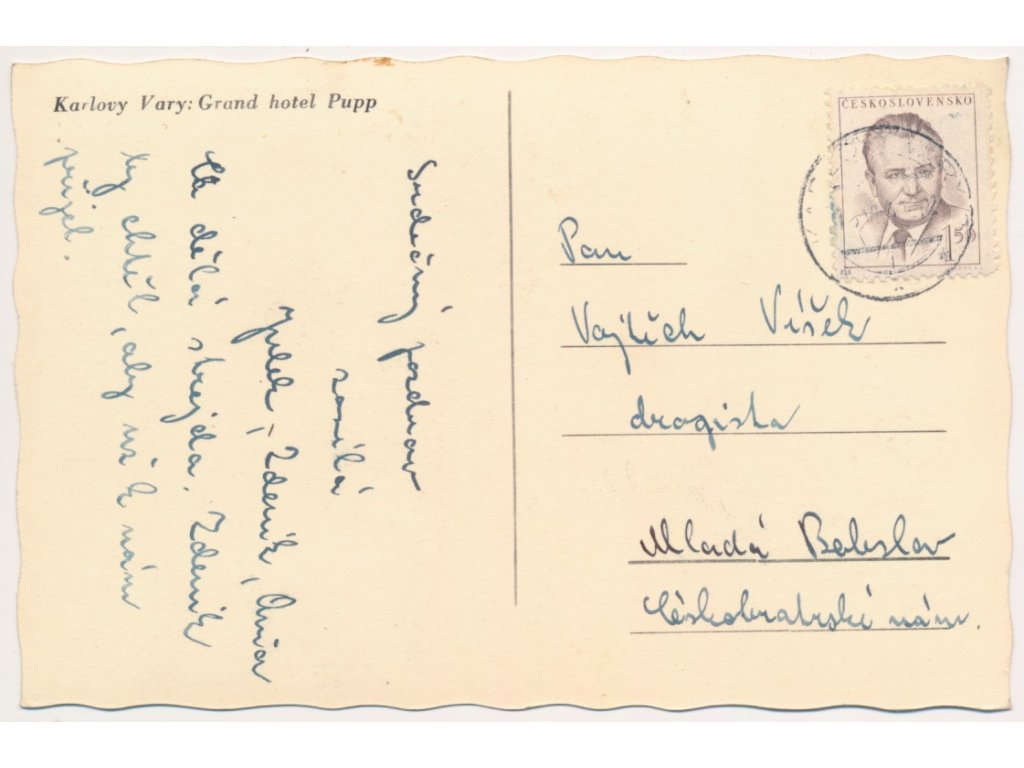 Karlovy Vary: Grand hotel Pupp
Srdečný pozdrav
zasílá
Zdeněk, Anča
Co dělá strejda. Zdeněk
by chtěl, aby už k nám
přijel.
ČESKOSLOVENSKO
1.50
Pan
Vojtěch Víšek
drogista
Mladá Boleslav
Českobratrské nám.